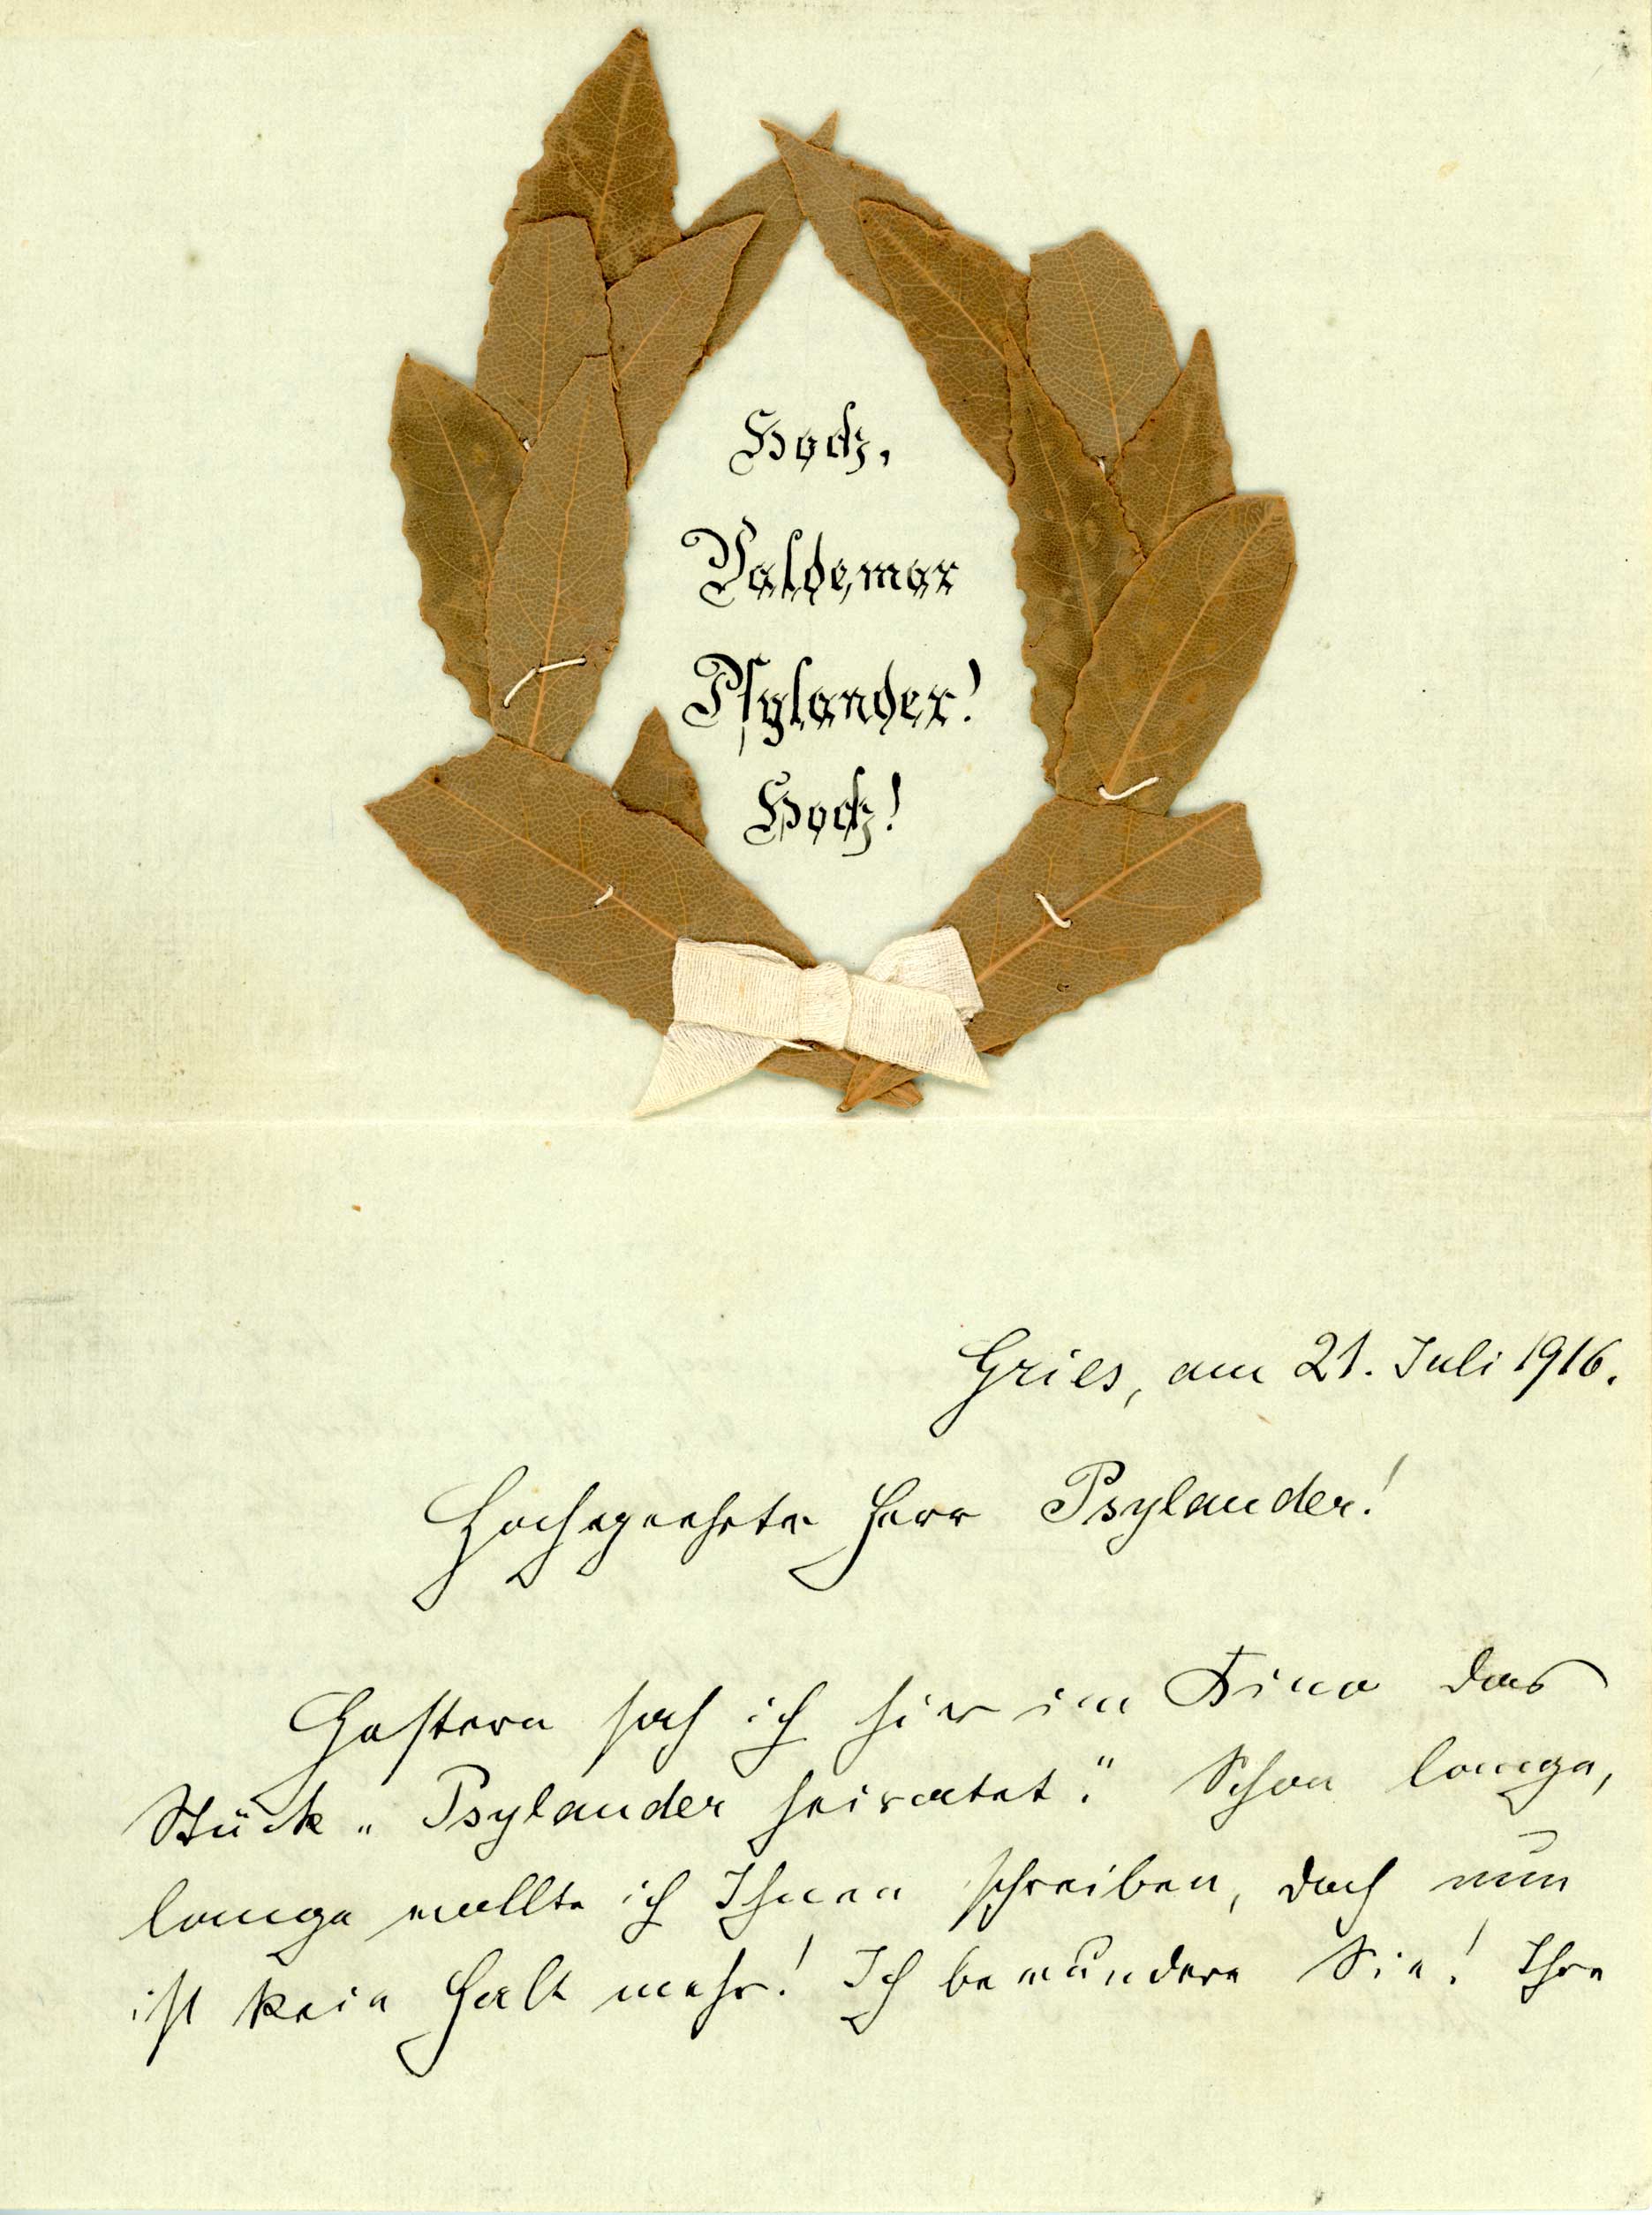 Hoch,
Valdemar
Psylander!
Hoch!
Gries, am 21. Juli 1916.
Hochgeehrter Herr Psylander!
Gestern sah ich hier im Kino das
Stück „Psylander heiratet.“ Schon lange,
lange wollte ich Ihnen schreiben, doch nun
ist kein Halt mehr! Ich bewundere Sie! Ihre